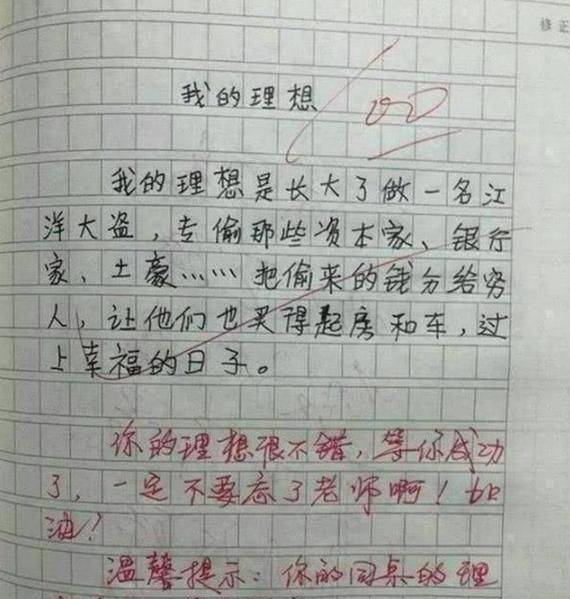 修正
我的理想
100
我的理想是长大了做一名江
洋大盗，专偷那些资本家、银行
家、土豪……把偷来的钱分给穷
人，让他们也买得起房和车，过
上幸福的日子。
你的理想很不错，等你成功
了，一定不要忘了老师啊！加
油！
温馨提示：你的同桌的理